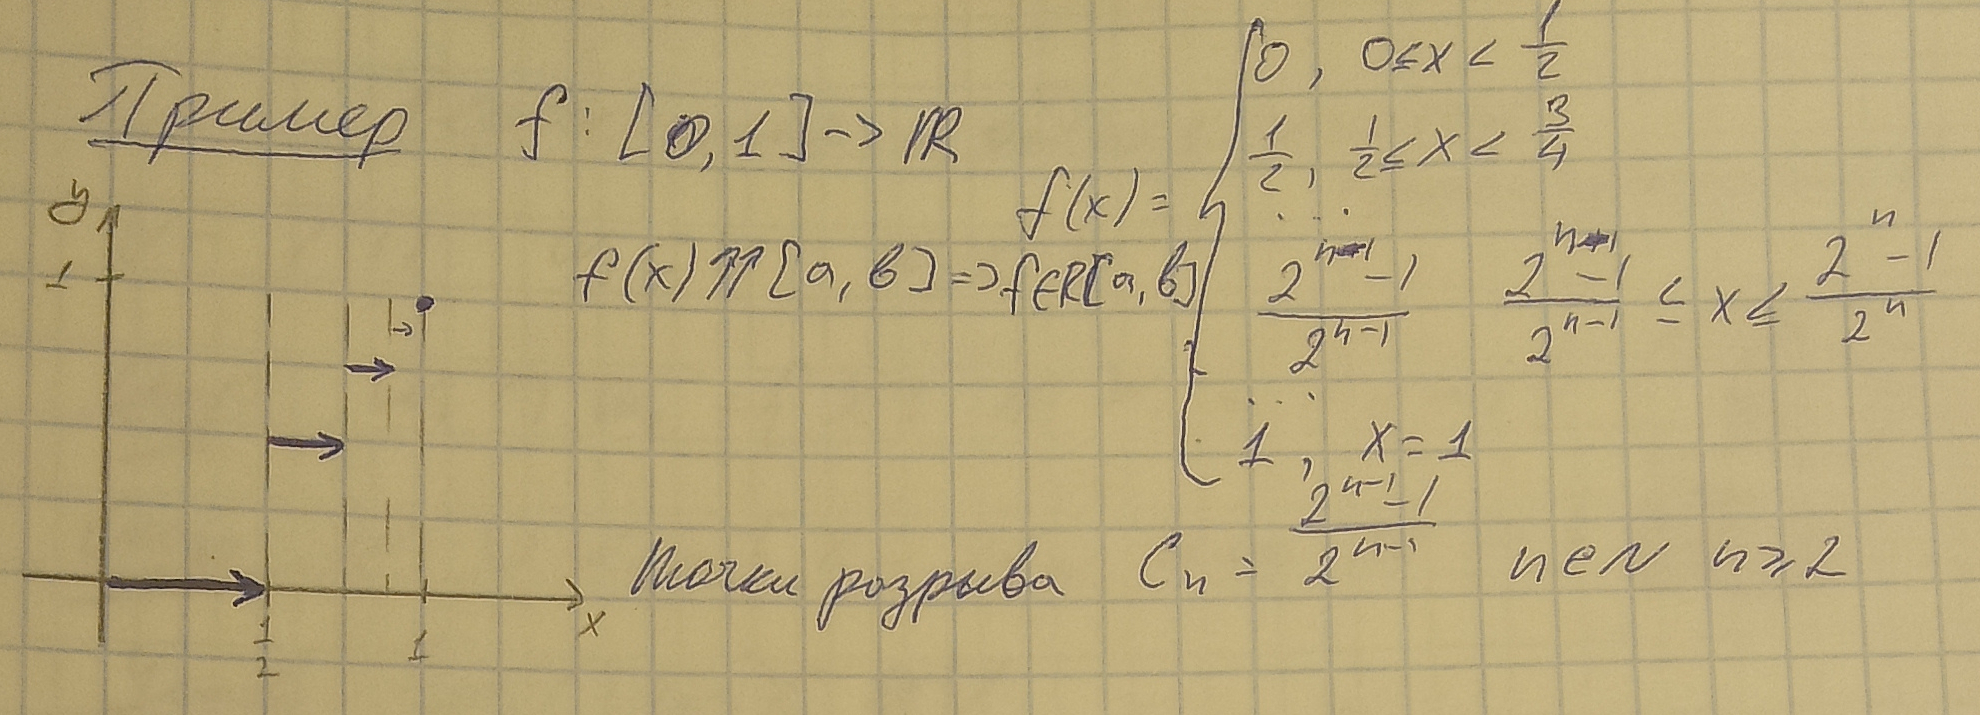 Пример f: [0,1] -> ℝ
f(x) = { 0, 0 ≤ x < 1/2
1/2, 1/2 ≤ x < 3/4
...
(2^(n-1) - 1)/2^(n-1) (2^(n-1) - 1)/2^(n-1) ≤ x ≤ (2^n - 1)/2^n
...
1, x = 1
f(x) ⇈ [a, b] => f∈R[a, b]
y
1
1/2
1
x
Точки розрыва C_n = (2^(n-1) - 1)/2^(n-1) n∈N n≥2